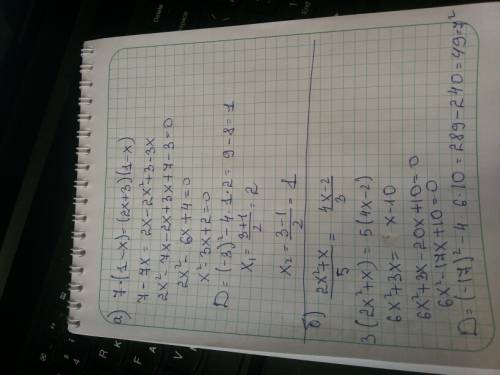 а) 7·(1-x)=(2x+3)(1-x)
7-7x=2x-2x²+3-3x
2x²-7x-2x+3x+7-3=0
2x²-6x+4=0
x²-3x+2=0
D=(-3)²-4·1·2=9-8=1
x₁=(3+1)/2=2
x₂=(3-1)/2=1
б) (2x²+x)/5=(4x-2)/3
3(2x²+x)=5(4x-2)
6x²+3x= x-10
6x²+3x-20x+10=0
6x²-17x+10=0
D=(-17)²-4 6·10=289-240=49=7²